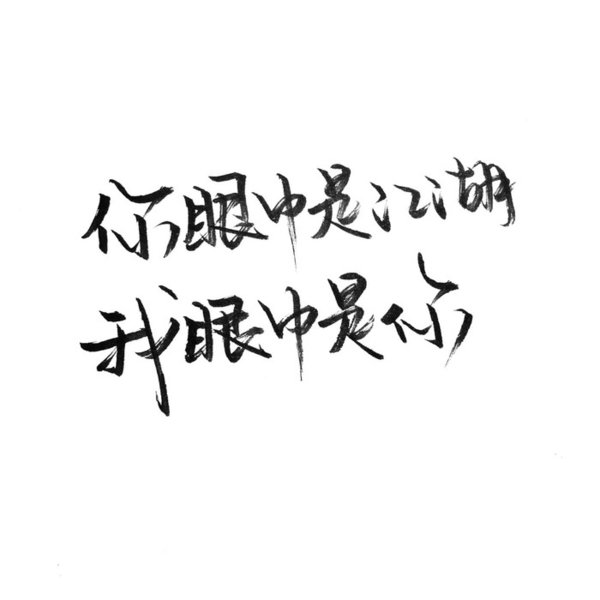 你眼中是江湖
我眼中是你